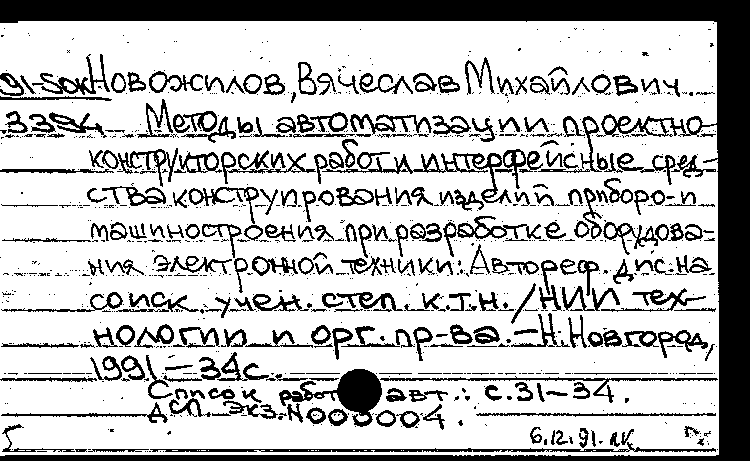 91-5ок Новожилов, Вячеслав Михайлович
3394 Методы автоматизации проектно-
конструкторских работ и интерфейсные сред-
ства конструирования изделий приборо- и
машиностроения при разработке оборудова-
ния электронной техники: Автореф. дис. на
соиск. учен. степ. к.т.н. / НИИ тех-
нологии и орг. пр-ва. – Н. Новгород,
1991 – 34с.
Список работ авт.: с. 31–34.
ДСП. Экз. N 000004.
6.12.91.